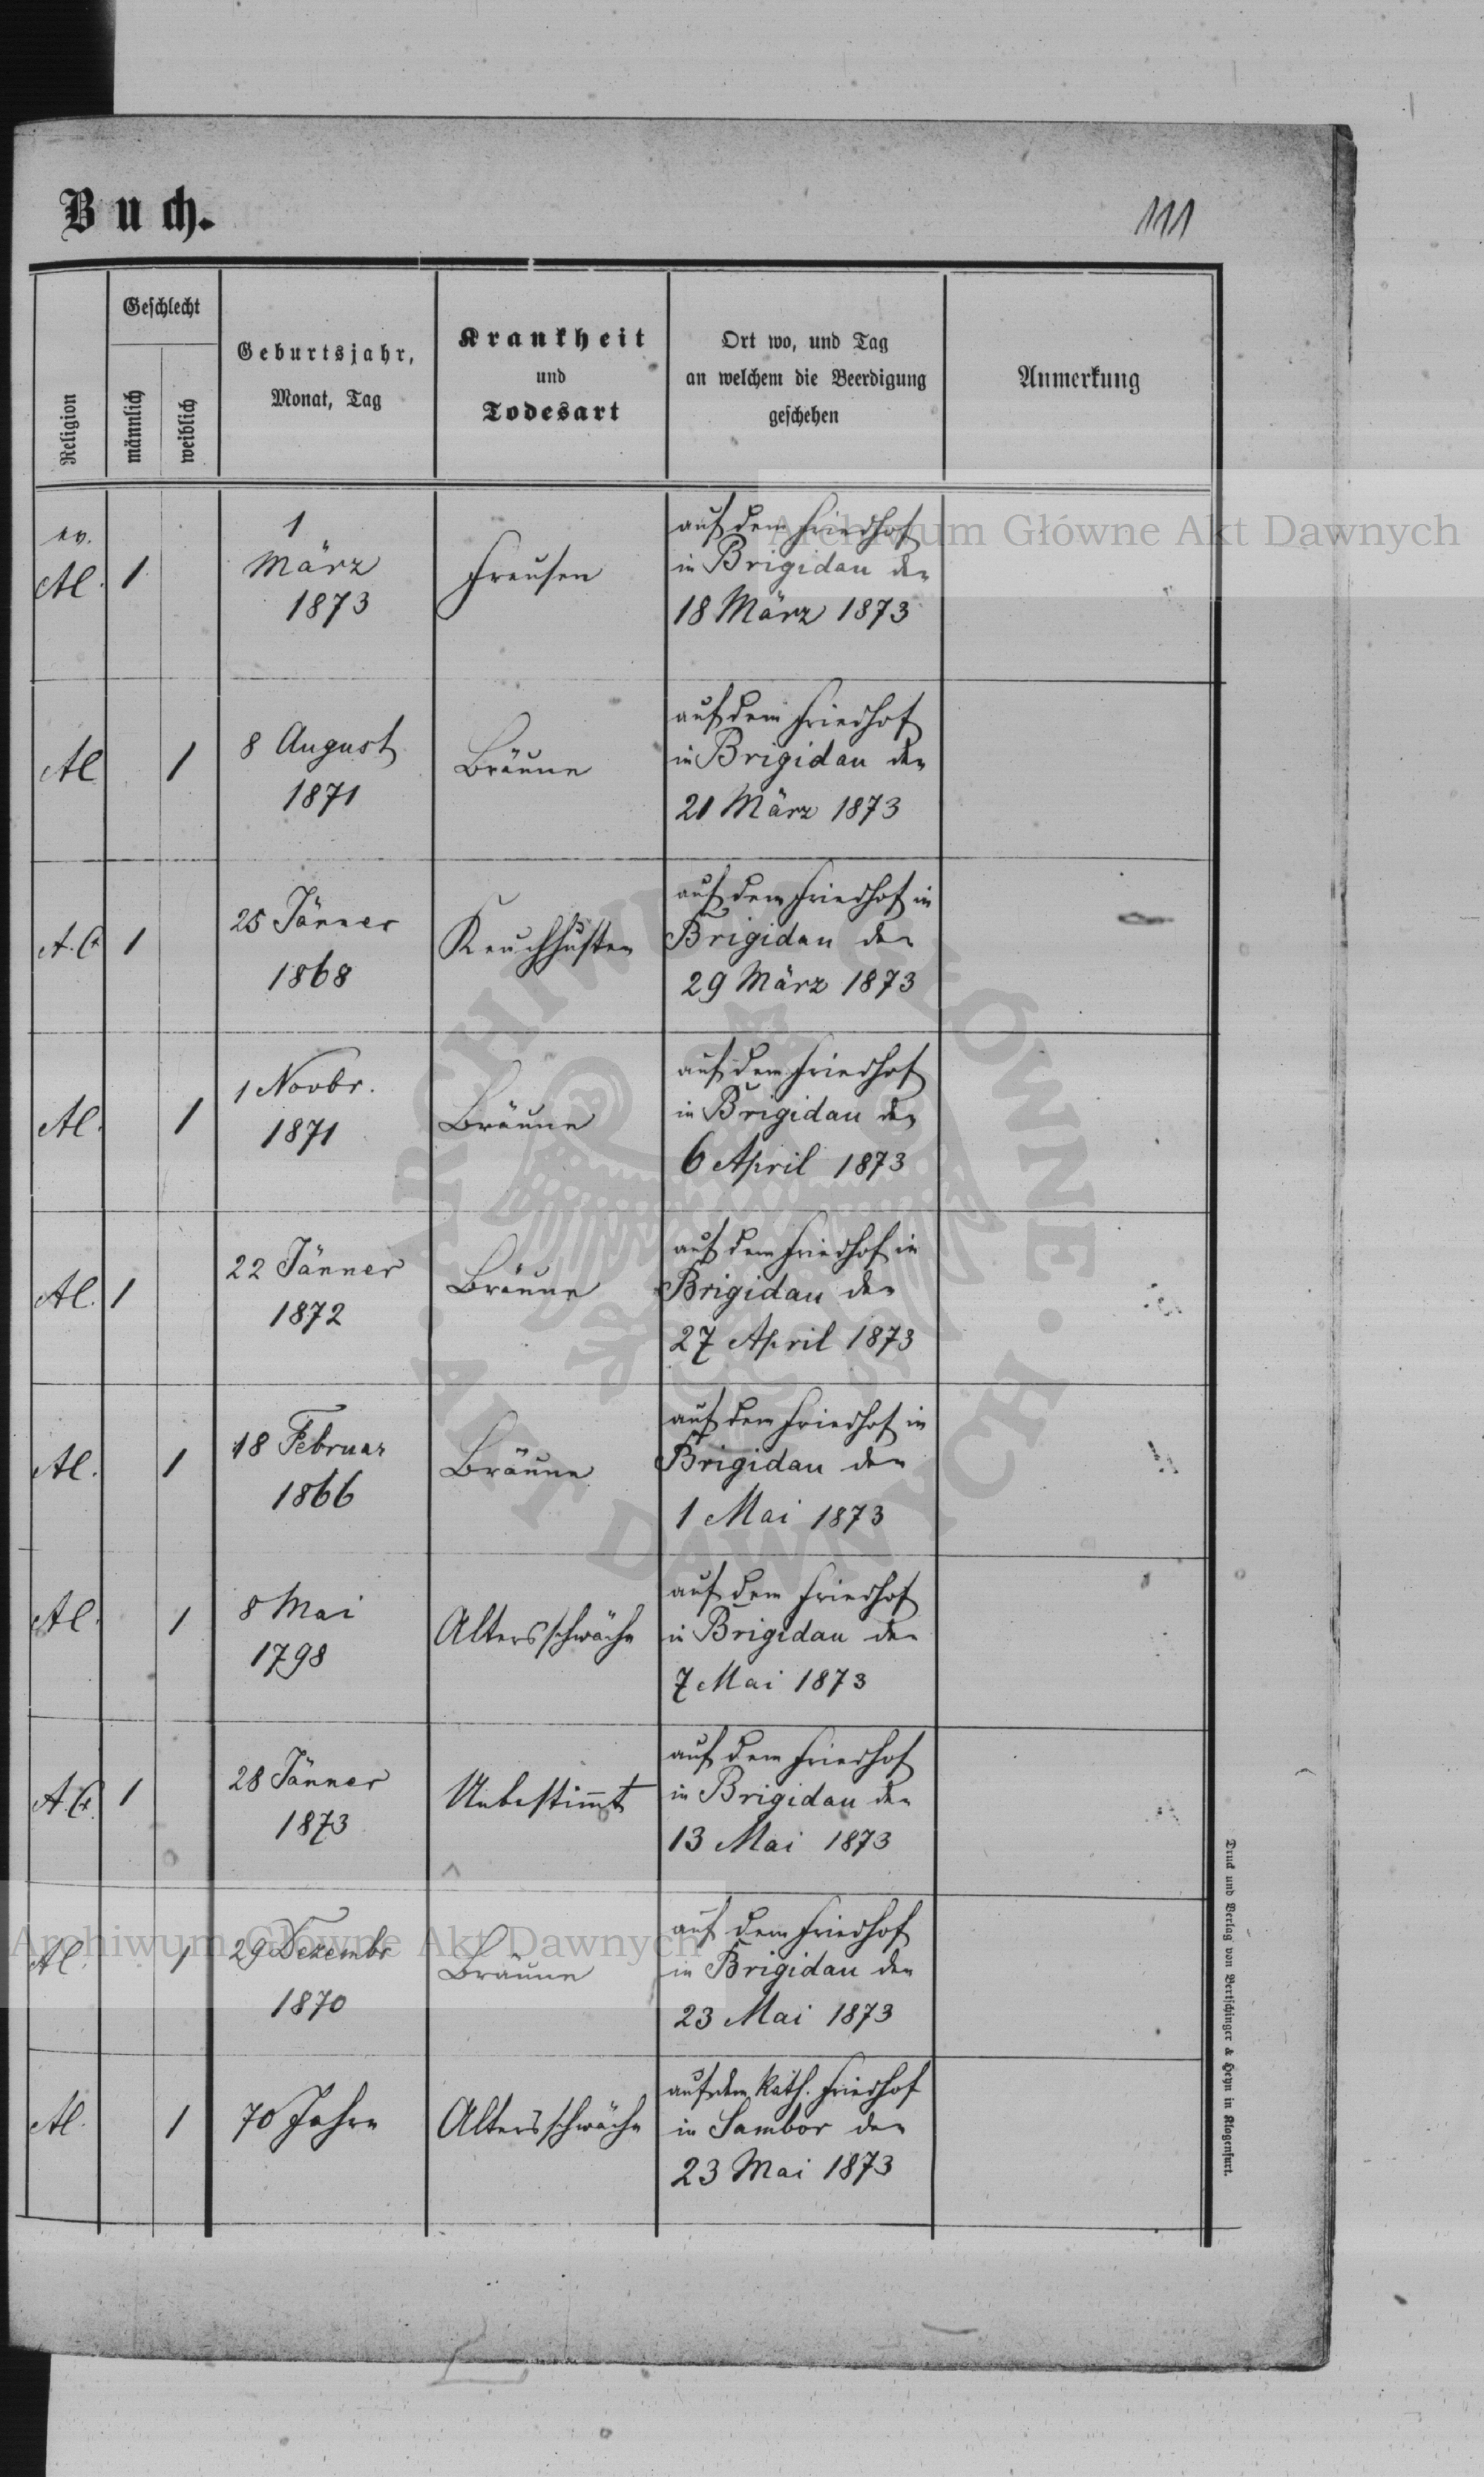 Buch.
111
Religion
Geschlecht
männlich
weiblich
Geburtsjahr,
Monat, Tag
Krankheit
und
Todesart
Ort wo, und Tag
an welchem die Beerdigung
geschehen
Anmerkung
ev.
Al.
1
1
März
1873
Freusen
auf dem Friedhof
in Brigidau den
18 März 1873
Al
1
8 August
1871
Bräune
auf dem Friedhof
in Brigidau den
21 März 1873
A.C.
1
25 Jänner
1868
Keuchhusten
auf dem Friedhof in
Brigidau den
29 März 1873
Al.
1
1 Novbr.
1871
Bräune
auf dem Friedhof
in Brigidau den
6 April 1873
Al.
1
22 Jänner
1872
Bräune
auf dem Friedhof in
Brigidau den
27 April 1873
Al.
1
18 Februar
1866
Bräune
auf dem Friedhof in
Brigidau den
1 Mai 1873
Al.
1
8 Mai
1798
Altersschwäche
auf dem Friedhof
in Brigidau den
7 Mai 1873
A.C.
1
28 Jänner
1873
Unbestimmt
auf dem Friedhof
in Brigidau den
13 Mai 1873
Al.
1
29 Dezembr
1870
Bräune
auf dem Friedhof
in Brigidau den
23 Mai 1873
Al.
1
70 Jahre
Altersschwäche
auf dem kath. Friedhof
in Sambor den
23 Mai 1873
Druck und Verlag von Bertschinger & Heyn in Klagenfurt.
Archiwum Główne Akt Dawnych
Archiwum Główne Akt Dawnych
ARCHIWUM GŁÓWNE · AKT DAWNYCH ·